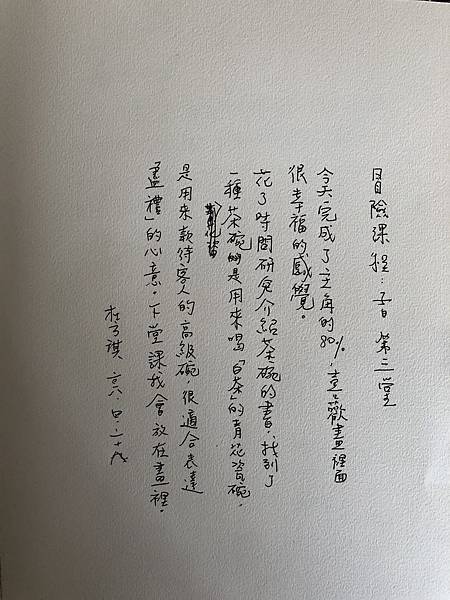 冒險課程：尋 第二堂
今天完成了主角的80%，喜歡畫裡面
很幸福的感覺。
花了時間研究介紹茶碗的書，找到了
一種茶碗是用來喝「白茶」的青花瓷碗，
是用來款待客人的高級碗，很適合表達
盡禮」的心意。下堂課我會放在畫裡。